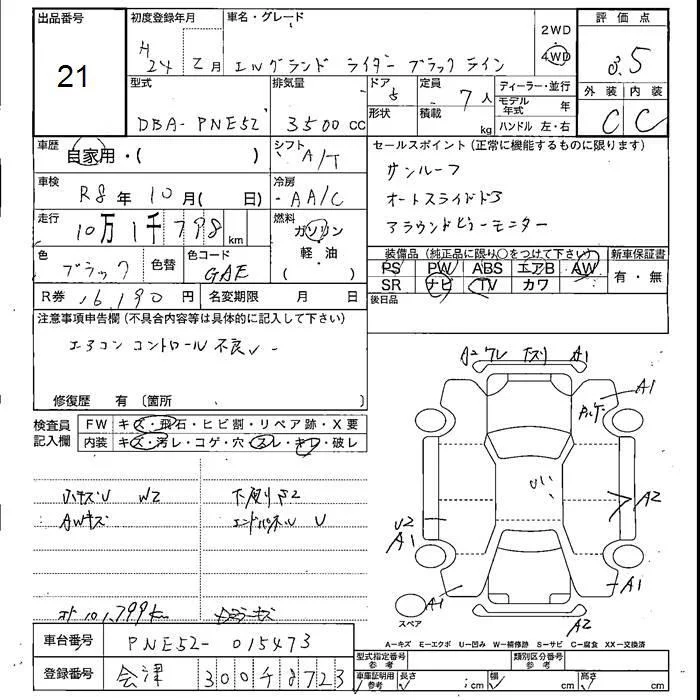 出品番号 初度登録年月 車名・グレード 2WD 評価点
21 H24 年 月 エルグランド ライダー ブラックライン 4WD 3.5
型式 排気量 ドア 定員 ディーラー・並行 外装 内装
DBA-PNE52 3500cc 5 7人 モデル年式 年 C C
形状 積載 kg ハンドル 左・右
車歴 自家用・( ) シフト A/T セールスポイント(正常に機能するものに限ります)
車検 R8年 10月( 日) 冷房 AA/C サンルーフ
オートスライドドア
走行 10万1千798km 燃料 ガソリン アラウンドビューモニター
軽・油 ( )
色 ブラック 色替 色コード GAE 装備品(純正品に限り○をつけて下さい) 新車保証書
PS PW ABS エアB AW 有・無
R券 16,190円 名変期限 月 日 SR ナビ TV カワ
後日品
注意事項申告欄(不具合内容等は具体的に記入して下さい)
エアコン コントロール不良
A2 ワレ A1
修復歴 有 〔箇所 A1
検査員記入欄 FW キズ・飛石・ヒビ割・リペア跡・X要
内装 キズ・汚レ・コゲ・穴・スレ・キレ・破レ
小キズU W2 下廻りS2
AWキズ エンドパネルU
A2
U2
A1
A1 A1
スペア A2
101,799km
A-キズ E-エクボ U-凹み W-補修跡 S-サビ C-腐食 XX-交換済
車台番号 PNE52-015473
型式指定番号 参考 類別区分番号 参考
登録番号 会津 300 8723
車庫証明用 参考 長さ cm 幅 cm 高さ cm